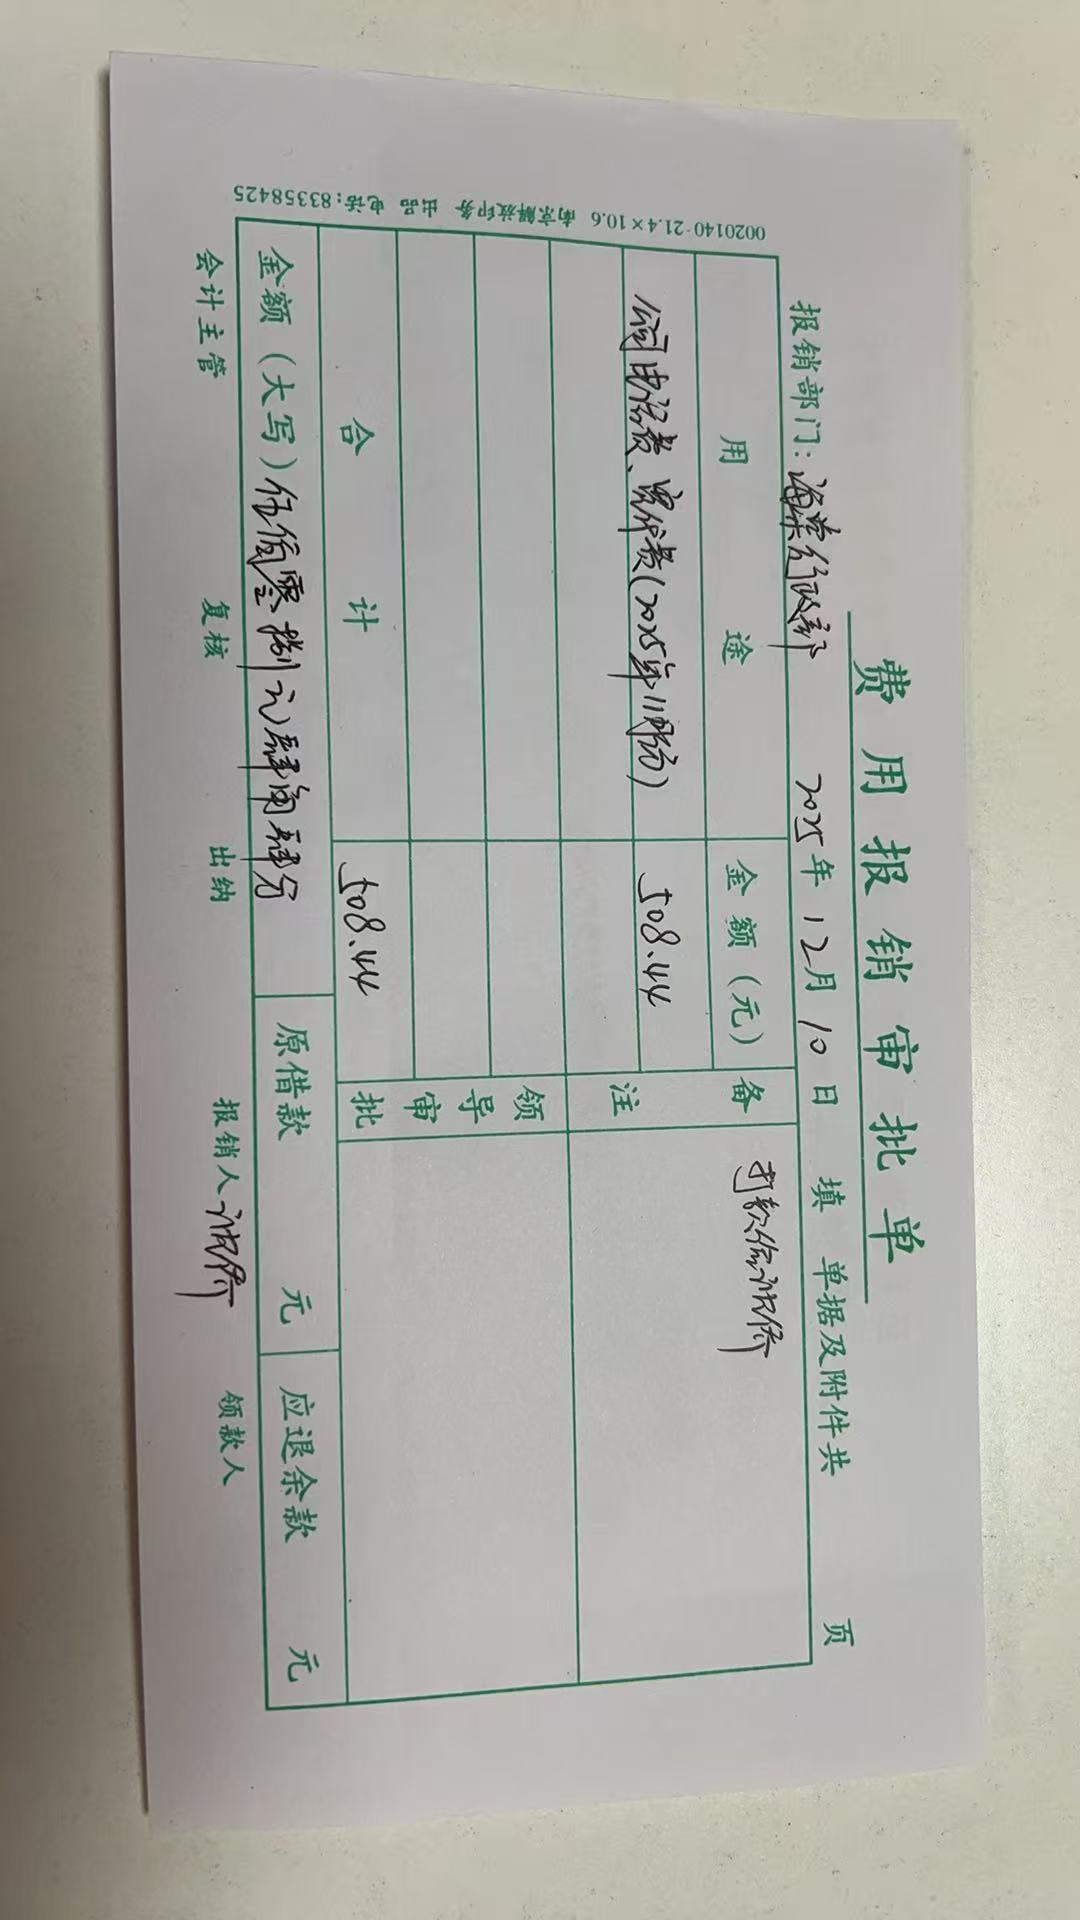 费用报销审批单
报销部门：海棠行政部 2025年12月10日填 单据及附件共 页
用途 金额（元） 备注 打款给
公司电话费、宽带费（2025年11月份） 508.44
领导审批
合计 508.44
金额（大写）伍佰零捌元肆角肆分 原借款 元 应退余款 元
会计主管 复核 出纳 报销人 领款人
0020140-21.4×10.6 南京解放印务 出品 电话：83358425